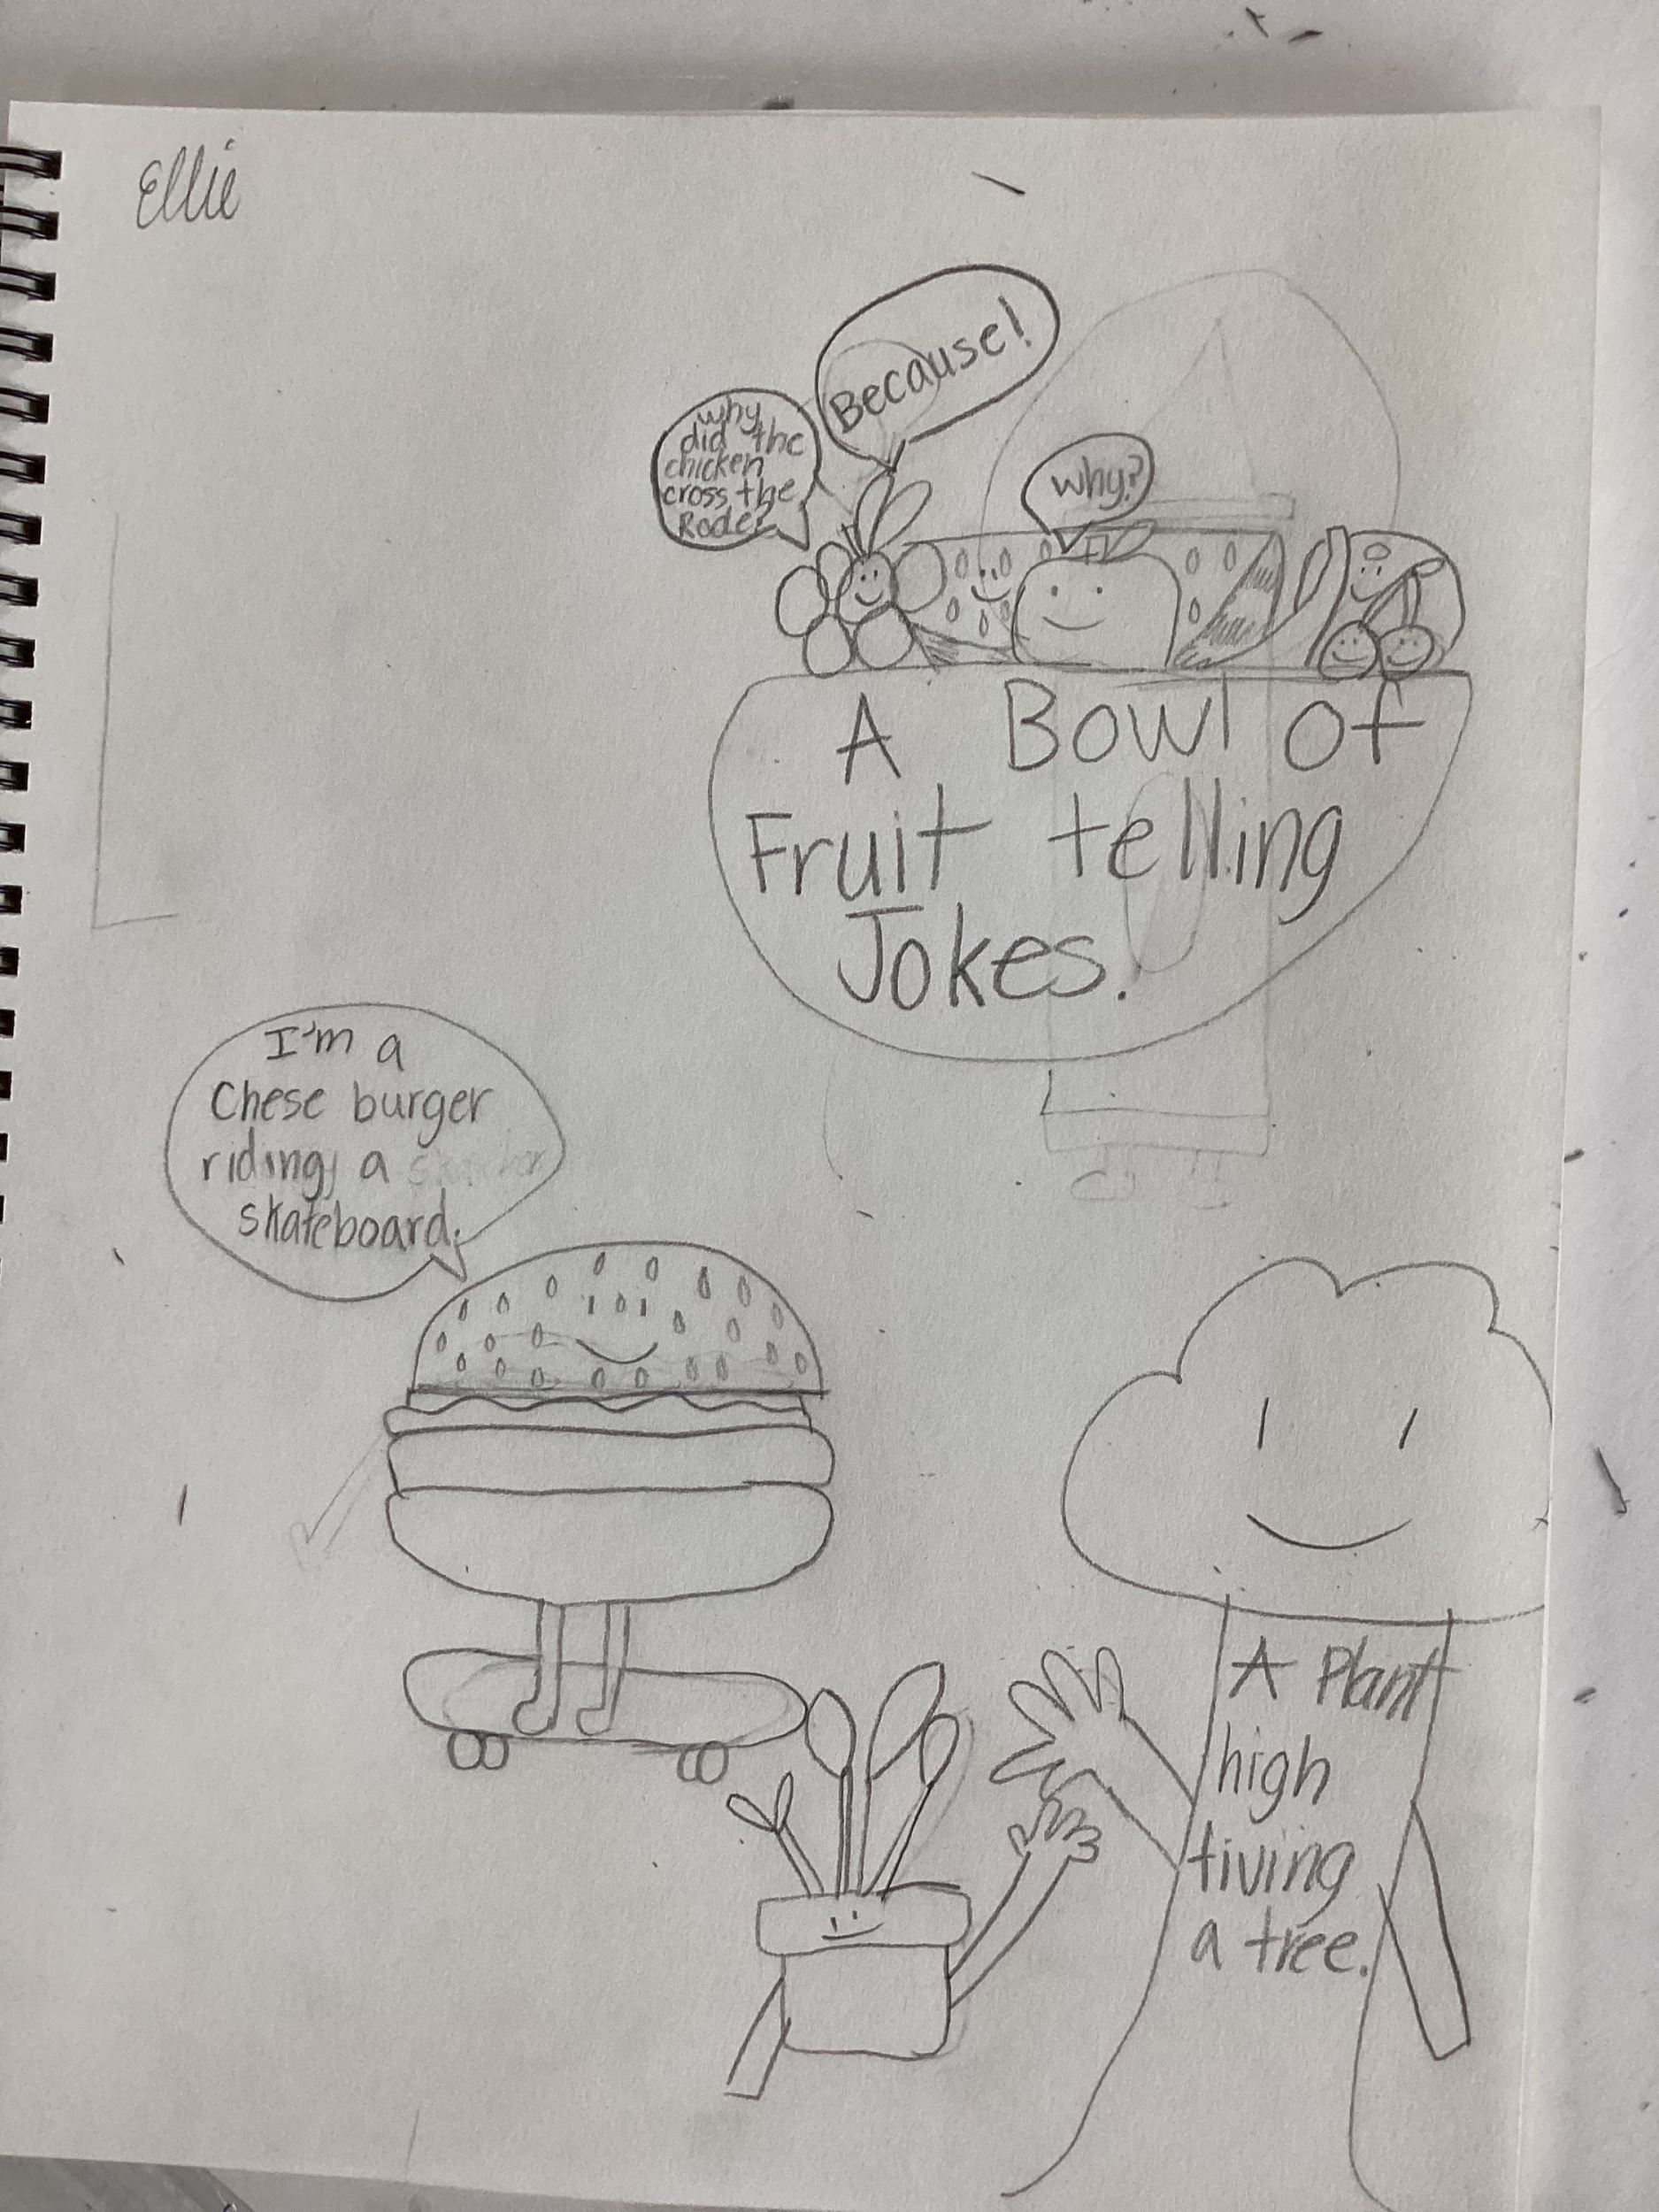 Ellie
Because!
why
did the
chicken
cross the
Rode?
why?
A Bowl of
Fruit telling
Jokes.
I'm a
Chese burger
riding a
skateboard.
A Plant
high
fiving
a tree.